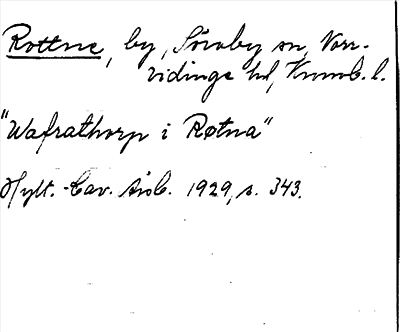 Rottne, by, Söraby sn, Norr-
vidinge hd, Kronob. l.
"Wafrathorp i Røtna"
Hylt.-Cav. årsb. 1929, s. 343.